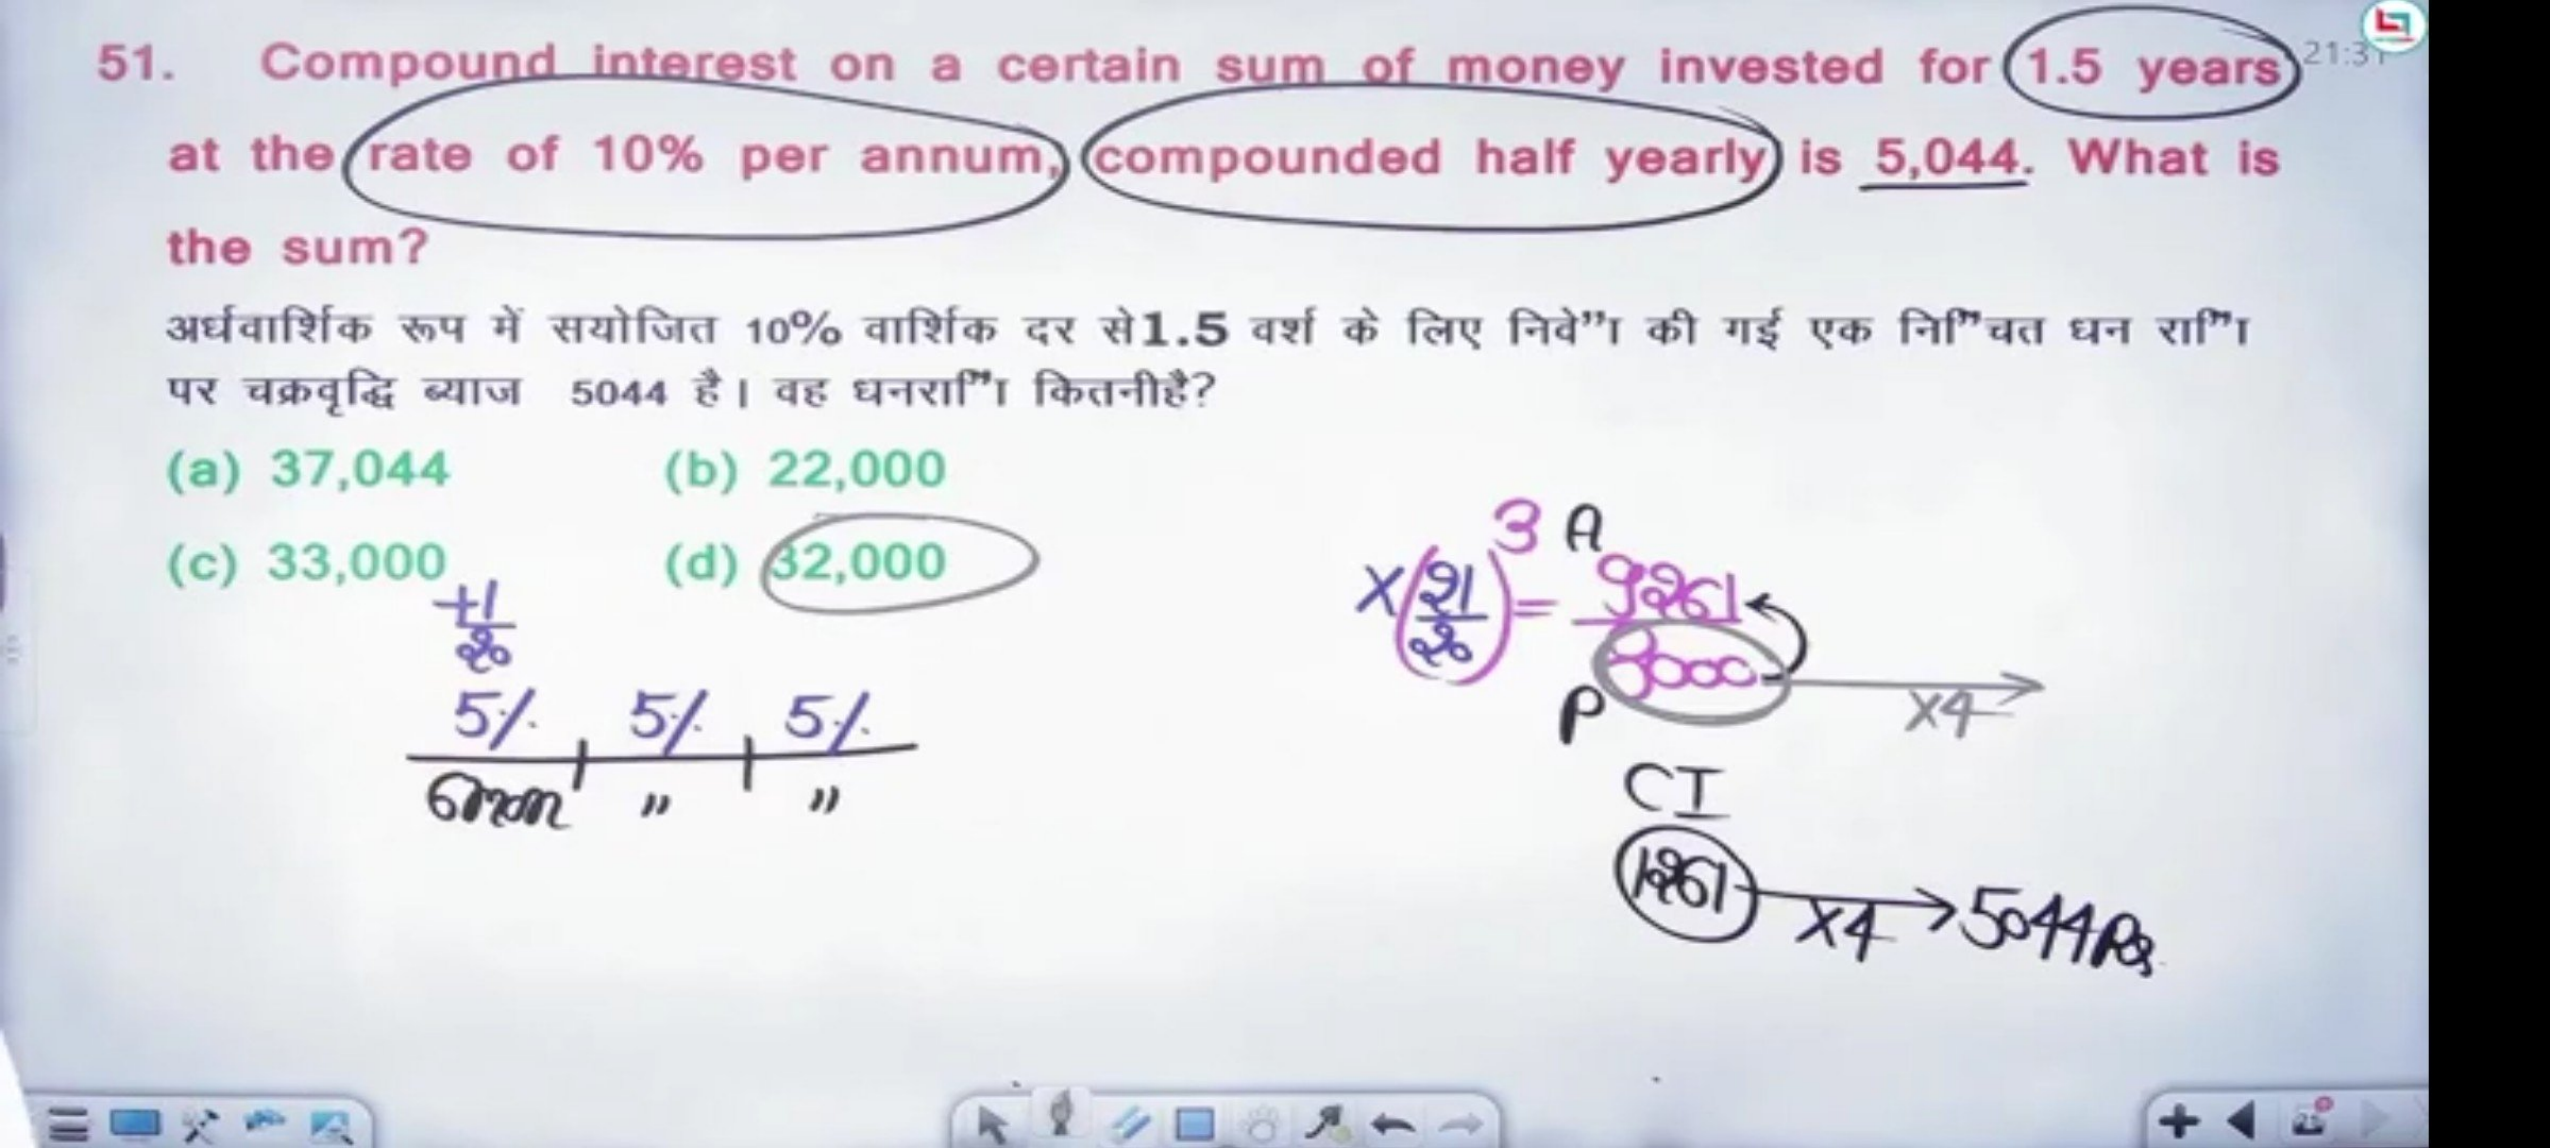 51. Compound interest on a certain sum of money invested for 1.5 years
at the rate of 10% per annum, compounded half yearly is 5,044. What is
the sum?
अर्धवार्शिक रूप में सयोजित 10% वार्शिक दर से1.5 वर्श के लिए निवे”ा की गई एक निि”चत धन राि”ा
पर चक्रवृद्धि ब्याज 5044 है। वह धनराि”ा कितनीहै?
(a) 37,044 (b) 22,000
(c) 33,000 (d) 32,000
+1/20
5% 5% 5%
6mon " "
x(21/20)3 = 9261/8000
A
P
x4
CI
1261 x4 → 5044Rs